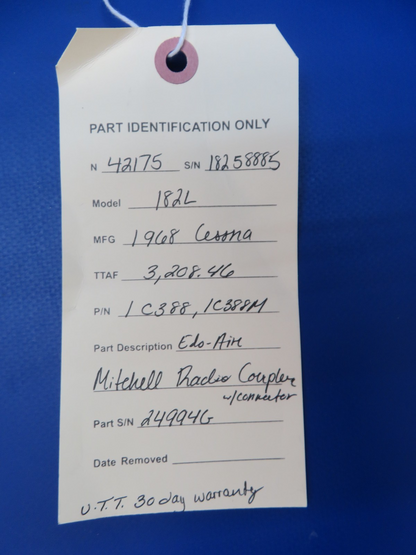 PART IDENTIFICATION ONLY
N 42175 S/N 18258885
Model 182L
MFG 1968 Cessna
TTAF 3,208.46
P/N 1C388, 1C388M
Part Description Edo-Aire
Mitchell Radio Coupler
w/connector
Part S/N 24994G
Date Removed
U.T.T. 30 day warranty